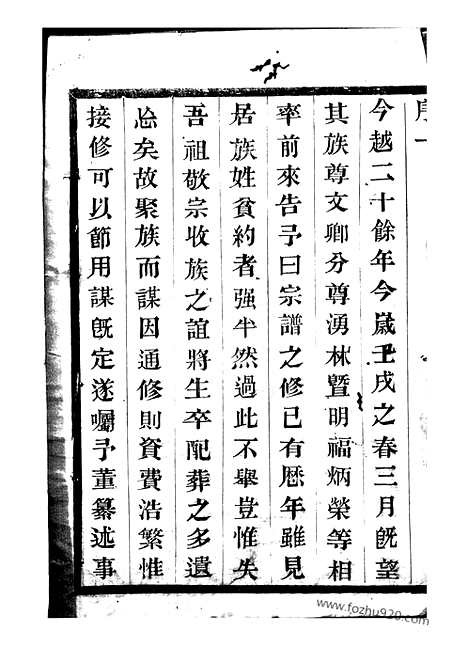 序一
今越二十餘年今嵗壬戌之春三月旣望
其族尊文卿分尊湧林暨明福炳榮等相
率前來告予曰宗譜之修已有歷年雖見
居族姓貧約者强半然過此不舉豈惟失
吾祖敬宗收族之誼將生卒配葬之多遺
忘矣故聚族而謀因通修則資費浩繁惟
接修可以節用謀旣定遂囑予董纂述事
www.fozhu920.com